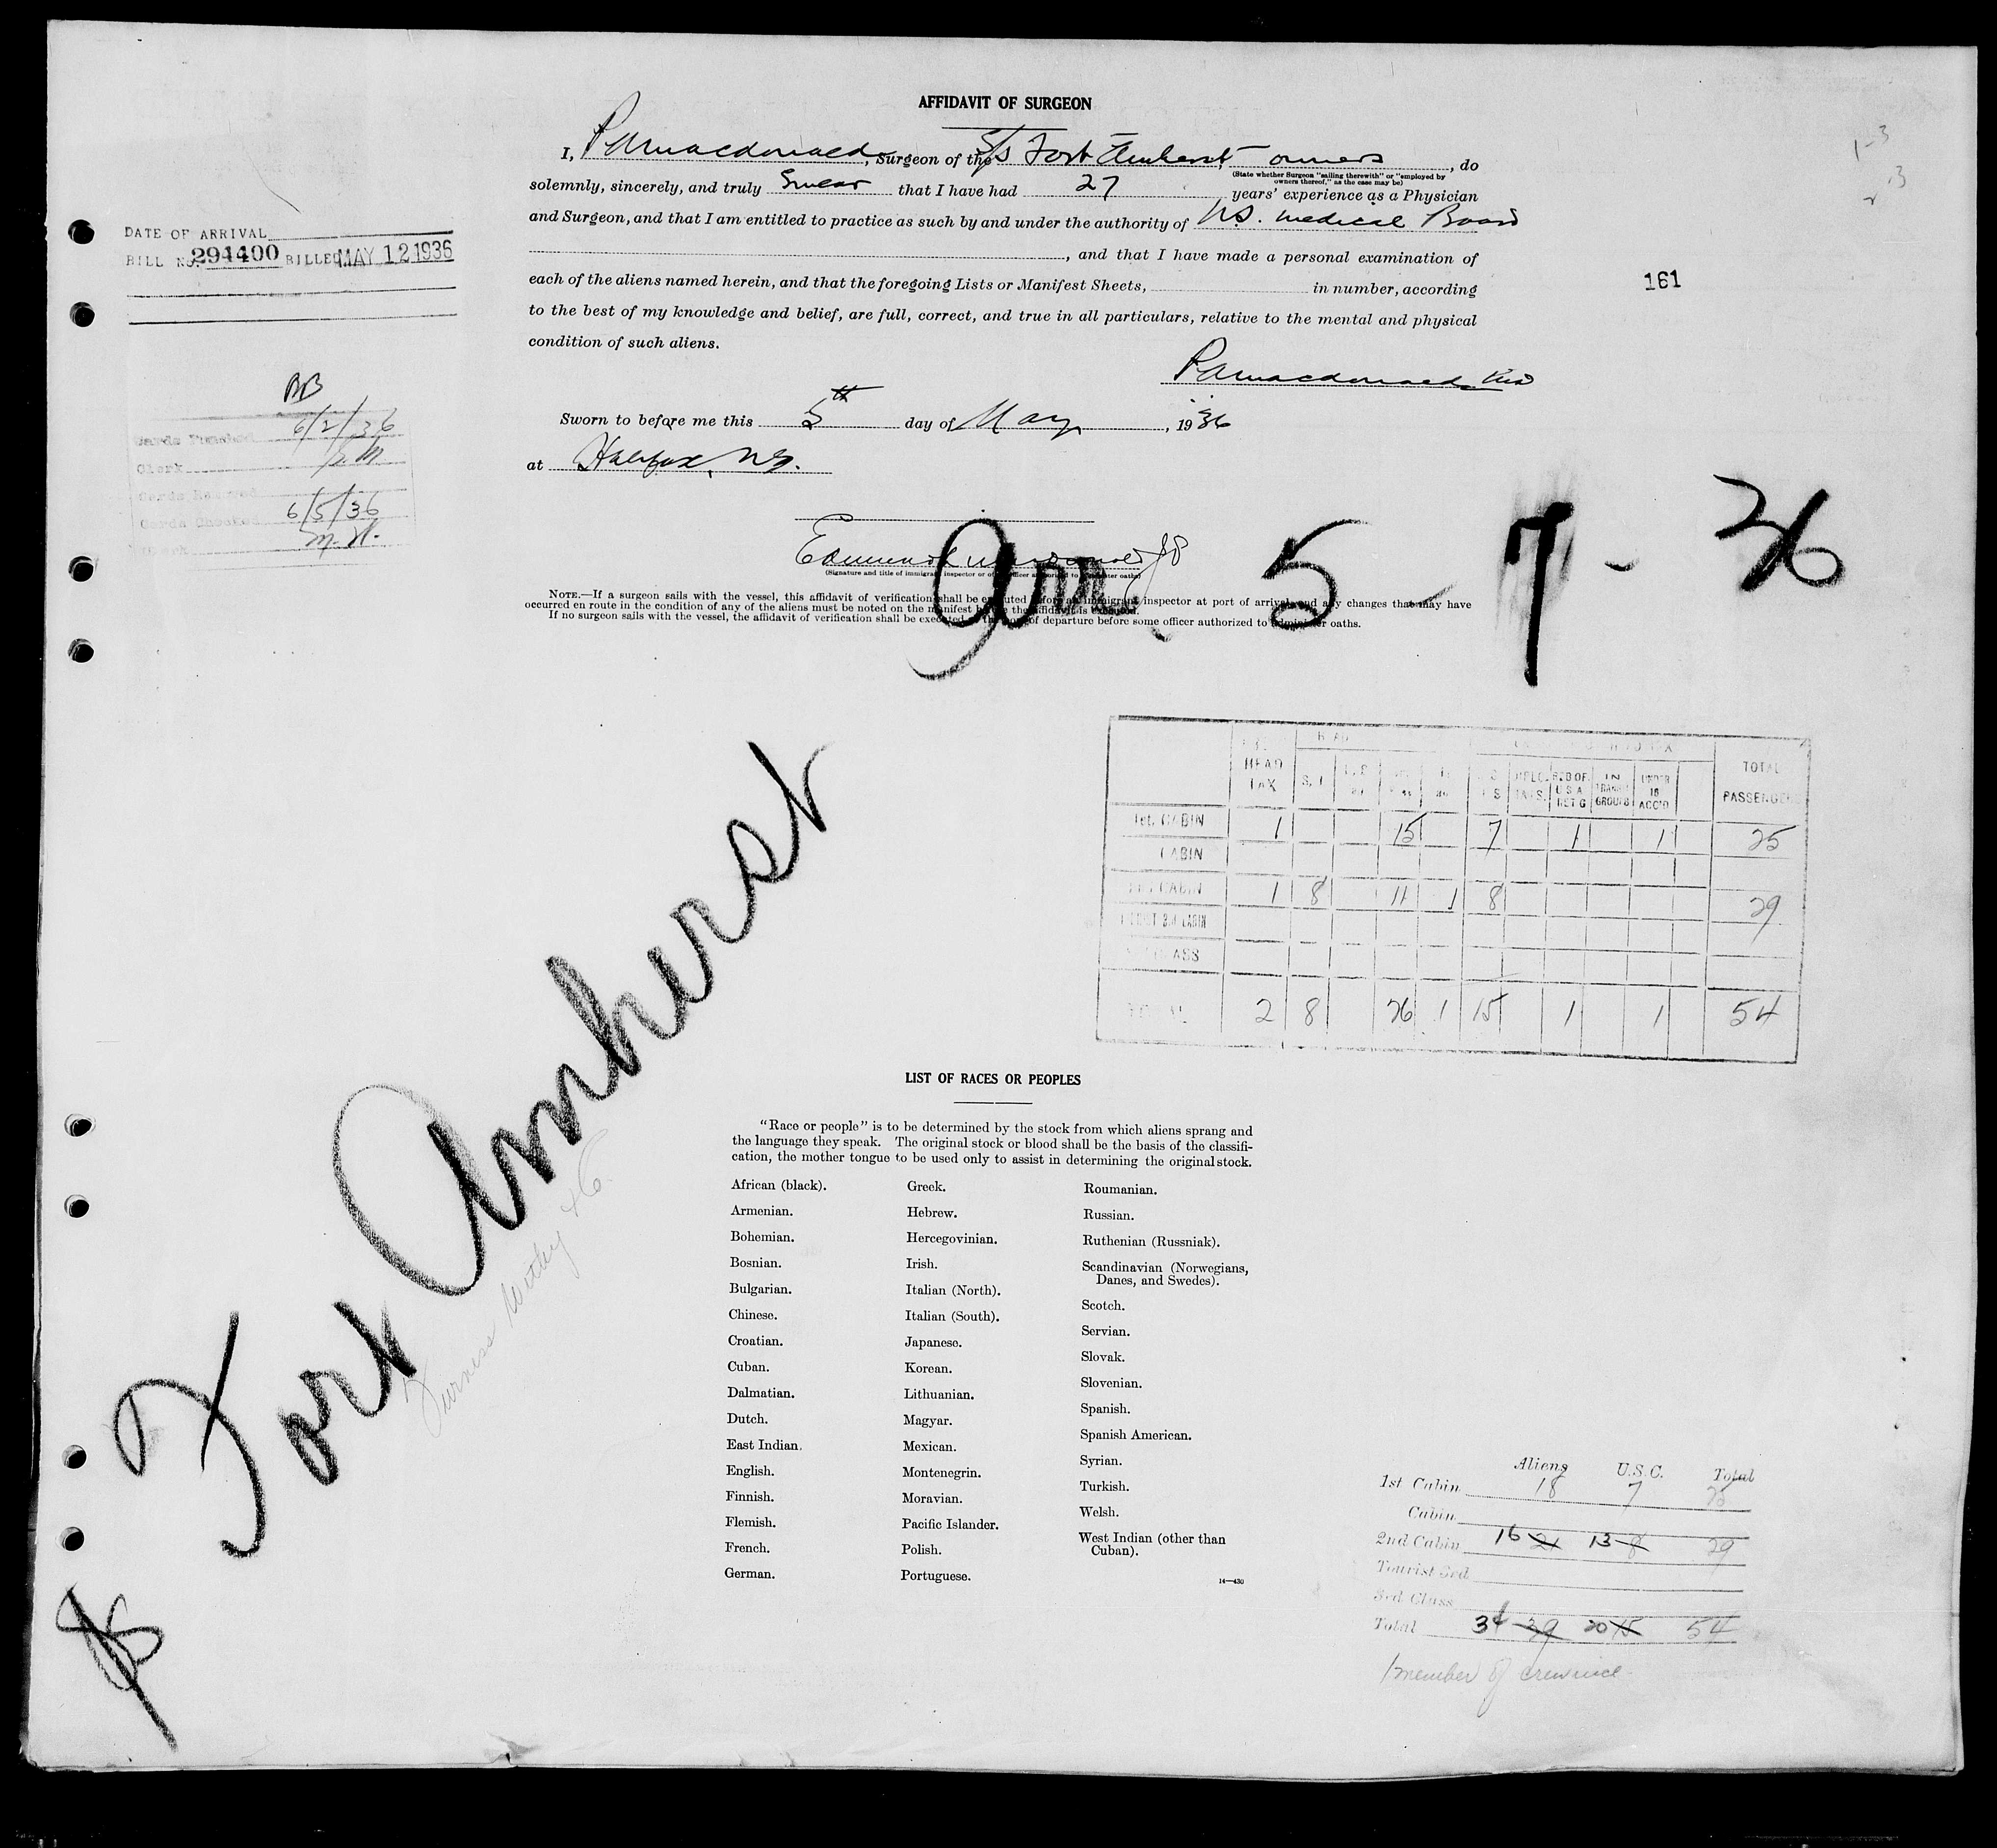 AFFIDAVIT OF SURGEON
I, PAMacdonald, Surgeon of the S/S Fort Amherst, owners, do
(State whether Surgeon "sailing therewith" or "employed by
owners thereof," as the case may be)
solemnly, sincerely, and truly Swear that I have had 27 years' experience as a Physician
and Surgeon, and that I am entitled to practice as such by and under the authority of N.S. medical Board
, and that I have made a personal examination of
each of the aliens named herein, and that the foregoing Lists or Manifest Sheets, in number, according
to the best of my knowledge and belief, are full, correct, and true in all particulars, relative to the mental and physical
condition of such aliens.
PAMacdonald MD
Sworn to before me this 5th day of May, 1936
at Halifax, N.S.
Edmund JP
(Signature and title of immigrant inspector or other officer authorized to administer oaths)
NOTE.—If a surgeon sails with the vessel, this affidavit of verification shall be executed before an immigrant inspector at port of arrival and any changes that may have
occurred en route in the condition of any of the aliens must be noted on the manifest before the affidavit is executed.
If no surgeon sails with the vessel, the affidavit of verification shall be executed at the port of departure before some officer authorized to administer oaths.
DATE OF ARRIVAL
BILL No. 294400 BILLED MAY 12 1936
161
1-3
BB
Cards Punched 6/2/36
Clerk
Cards Checked 6/5/36
Clerk M.H.
Arr. 5 - 7 - 36
HEAD TAX
S.I.
DIPLO-MATS.
RSD OF U S A RET G
IN TRANSIT GROUPS
UNDER 16 ACC'D
TOTAL PASSENGERS
1st. CABIN 1 15 7 1 1 25
CABIN
2nd CABIN 1 8 11 1 8 29
TOURIST 3rd CABIN
3rd CLASS
TOTAL 2 8 26 1 15 1 1 54
Fort Amherst
Furness Withy & Co.
LIST OF RACES OR PEOPLES
"Race or people" is to be determined by the stock from which aliens sprang and
the language they speak. The original stock or blood shall be the basis of the classifi-
cation, the mother tongue to be used only to assist in determining the original stock.
African (black).
Armenian.
Bohemian.
Bosnian.
Bulgarian.
Chinese.
Croatian.
Cuban.
Dalmatian.
Dutch.
East Indian.
English.
Finnish.
Flemish.
French.
German.
Greek.
Hebrew.
Hercegovinian.
Irish.
Italian (North).
Italian (South).
Japanese.
Korean.
Lithuanian.
Magyar.
Mexican.
Montenegrin.
Moravian.
Pacific Islander.
Polish.
Portuguese.
Roumanian.
Russian.
Ruthenian (Russniak).
Scandinavian (Norwegians,
Danes, and Swedes).
Scotch.
Servian.
Slovak.
Slovenian.
Spanish.
Spanish American.
Syrian.
Turkish.
Welsh.
West Indian (other than
Cuban).
14—430
Aliens U.S.C. Total
1st Cabin 18 7 25
Cabin
2nd Cabin 16 21 13 8 29
Tourist 3rd
3rd Class
Total 34 39 20 15 54
1 member of crew incl.